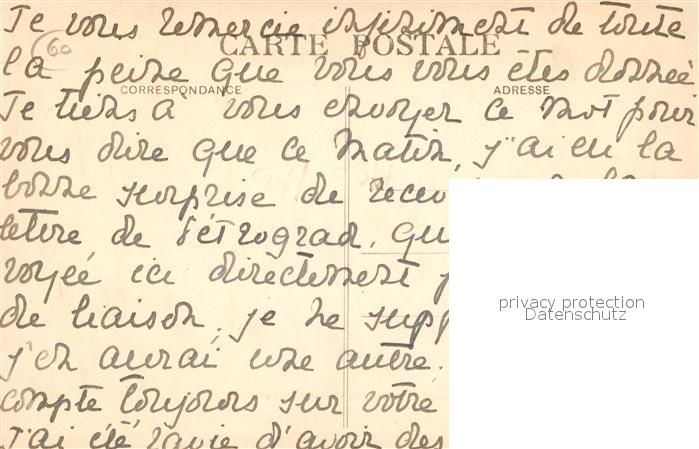 Je vous remercie infiniment de toute
60
CARTE POSTALE
la peine que vous vous êtes donnée
CORRESPONDANCE
ADRESSE
Je tiens à vous envoyer ce mot pour
vous dire que ce matin, j'ai eu la
bonne surprise de
lettre de Pétrograd, qu
voyée ici directement
de liaison, je ne
j'en aurai une autre.
compte toujours sur votre
J'ai été ravie d'avoir des
privacy protection
Datenschutz